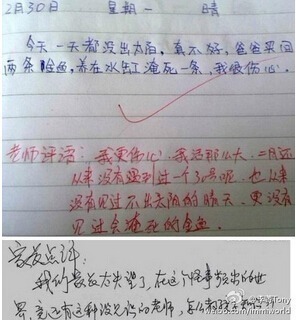 2月30日 星期一 晴
今天一天都没出太阳,真不好,爸爸买回
两条金鱼,养在水缸淹死一条,我很伤心。
老师评语:我更伤心,我活那么大,二月还
从来没有碰到过一个30号呢,也从来
没有见过不出太阳的晴天,更没有
见过会淹死的金鱼。
家长点评:
我们家长太失望了,在这个怪事频出的世
界,竟还有这种没见识的老师,怎么
weibo.com/immmworld